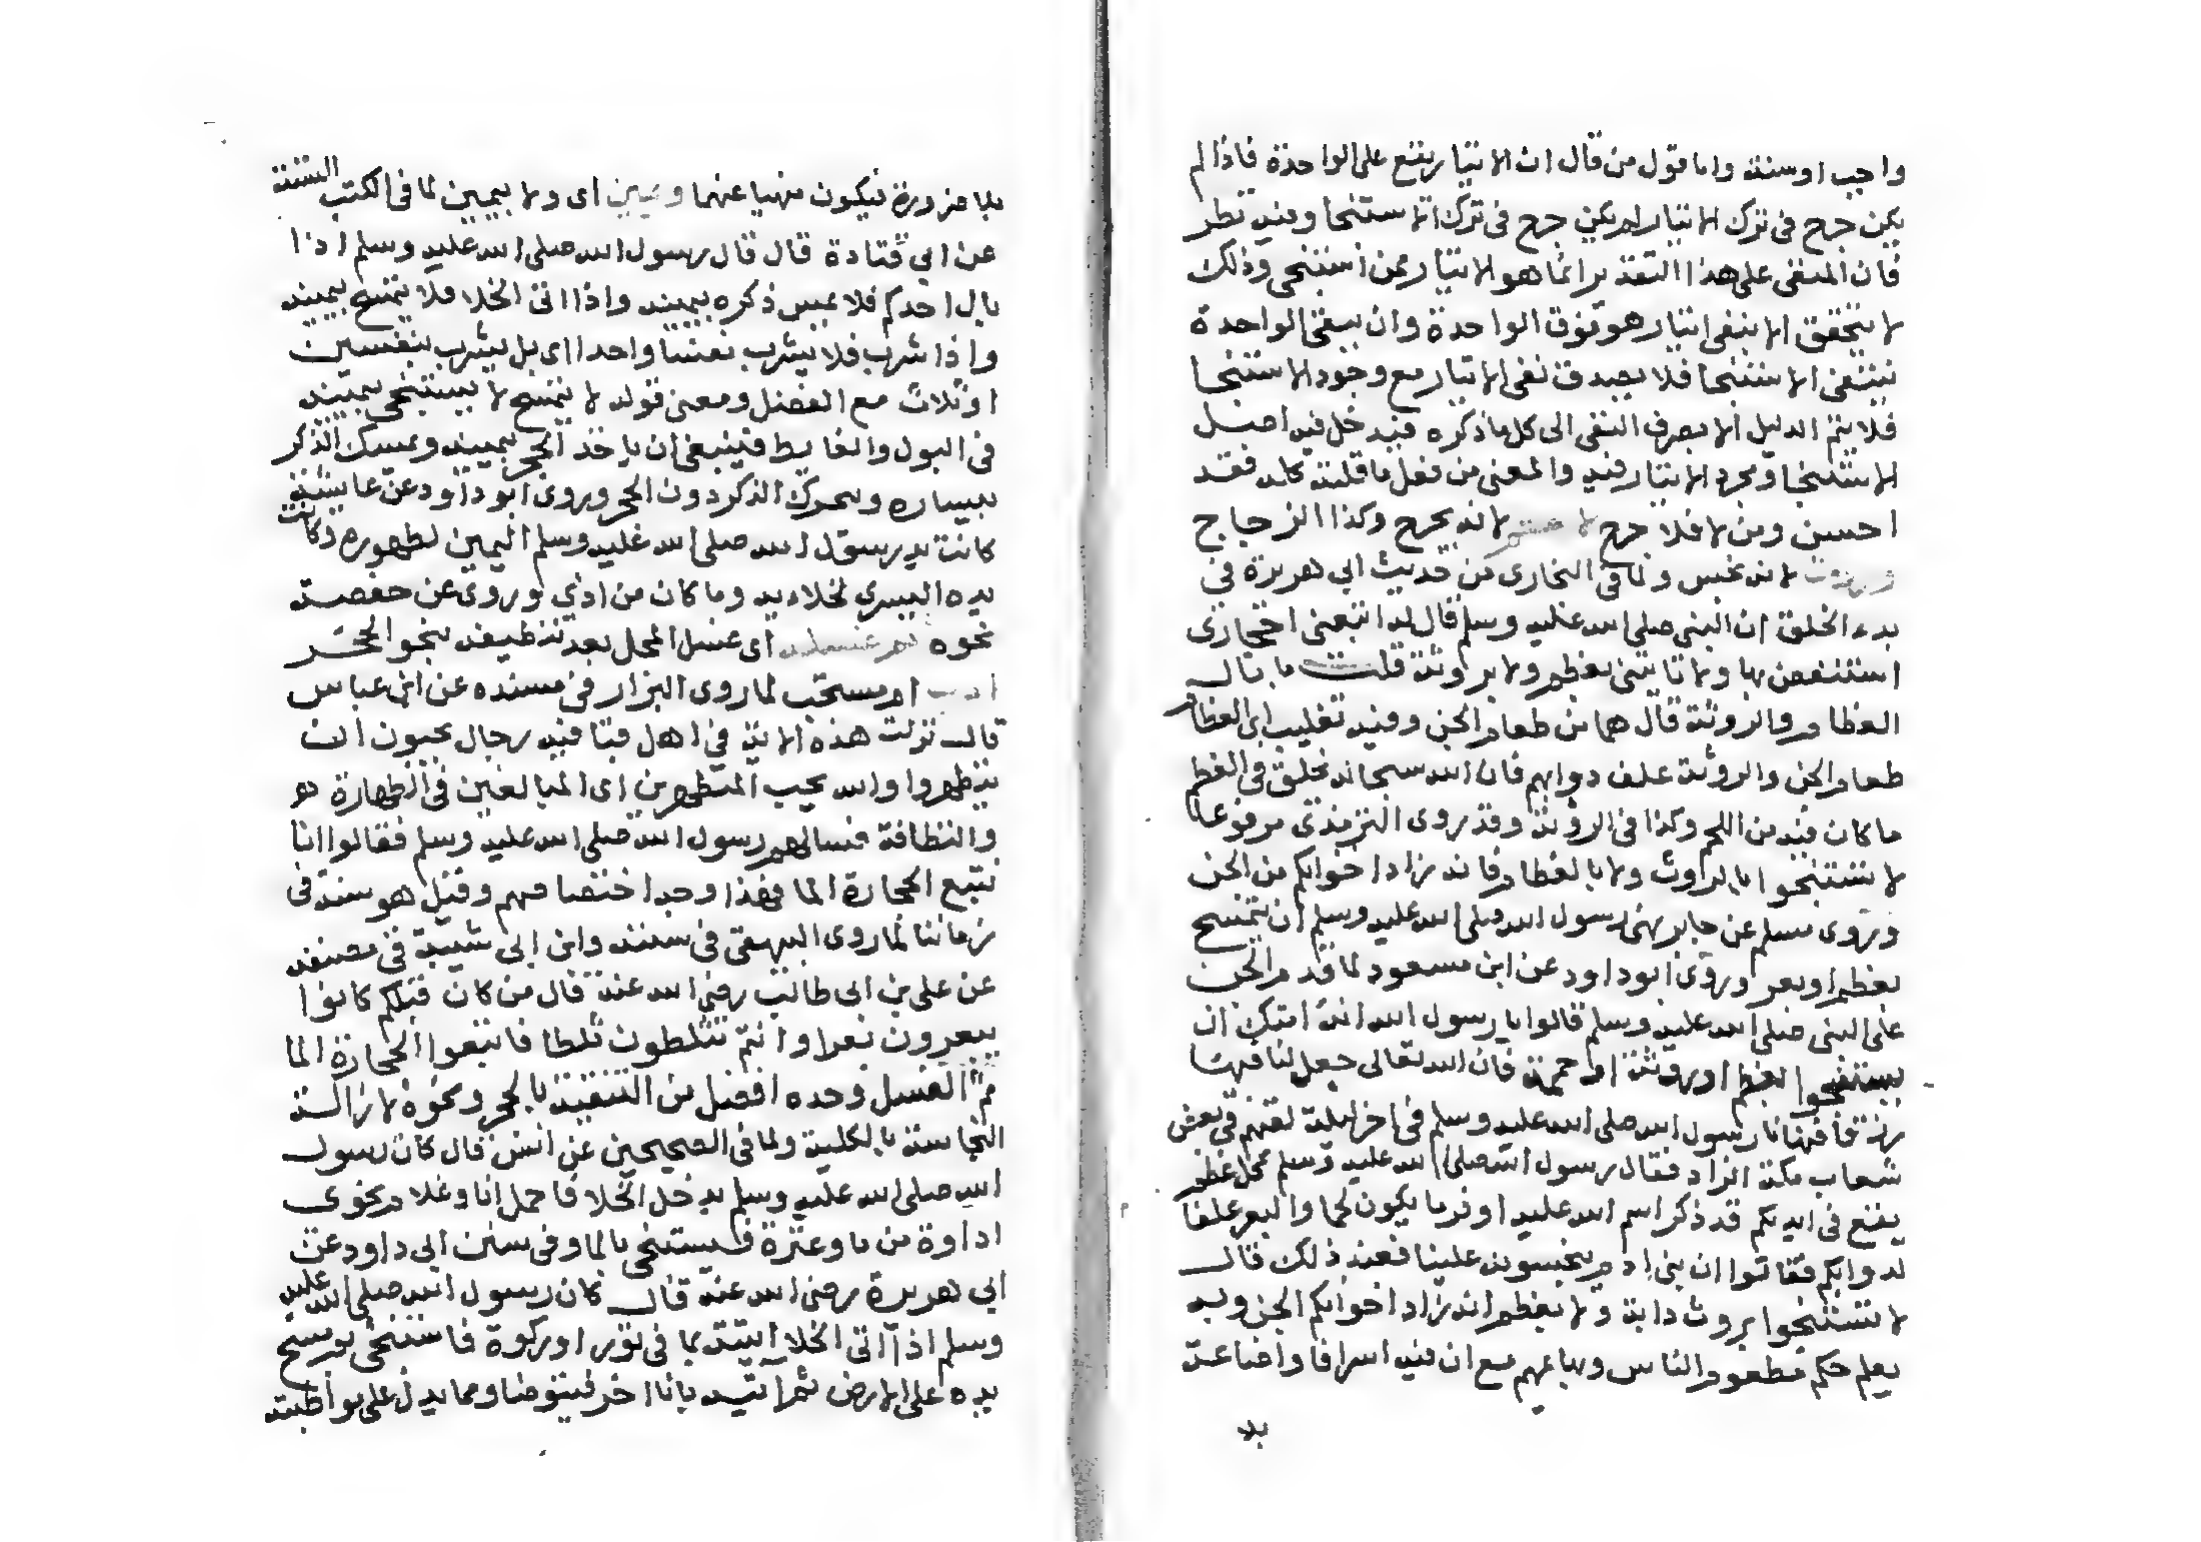 واجب او سنة واما قول من قال ان الايتار يقع على الواحدة فاذا لم
يكن حرج في ترك الايتار لم يكن حرج في ترك الاستنجا وفيه نظر
فان المنفى على هذا التقدير انما هو الايتار ممن استنجى وذلك
لا يتحقق الا بنفى ايتار هو فوق الواحدة وان يبقى الواحدة
فينتفى الاستنجا فلا يصدق نفى الايتار مع وجود الاستنجا
فلا يتم الدليل الا بصرف النفى الى كل ما ذكره فيدخل فيه اصل
الاستنجا ومجرد الايتار فيه والمعنى من فعل ما قلته كله فقد
احسن ومن لا فلا حرج لا لانه يجرح وكذا الزجاج
وروث لانه نجس ولما في البخارى من حديث ابي هريرة في
بدء الخلق ان النبى صلى الله عليه وسلم قال له اتبعنى احجارا
استنفض بها ولا تاتينى بعظم ولا بروثة قلت ما بال
العظام والروثة قال هما من طعام الجن وفيه تغليب اى العظام
طعام الجن والروثة علف دوابهم فان الله سبحانه يخلق في العظم
ما كان فيه من اللحم وكذا في الروثة وقد روى الترمذى مرفوعا
لا تستنجوا بالروث ولا بالعظام فانه زاد اخوانكم من الجن
وروى مسلم عن جابر نهى رسول الله صلى الله عليه وسلم ان يتمسح
بعظم او بعر وروى ابو داود عن ابن مسعود لما قدم الجن
على النبى صلى الله عليه وسلم قالوا يا رسول الله انه امتك ان
يستنجوا بعظم او روثة او حممة فان الله تعالى جعل لنا فيها
رزقا فنهانا رسول الله صلى الله عليه وسلم في اخر ليلة لقيهم في بعض
شعاب مكة الزاد فقال رسول الله صلى الله عليه وسلم كل عظم
يقع في ايديكم قد ذكر اسم الله عليه اوفر ما يكون لحما والبعر علفا
لدوابكم فقالوا ان بنى ادم ينجسونه علينا فعند ذلك قال
لا تستنجوا بروث دابة ولا بعظم انه زاد اخوانكم الجن وبه
يعلم حكم مطعوم الناس وبهايمهم مع ان فيه اسرافا واضاعة
بلا
بلا ضرورة فيكون منهيا عنهما ويمين اى ولا بيمين لما في الكتب الستة
عن ابي قتادة قال قال رسول الله صلى الله عليه وسلم اذا
بال احدكم فلا يمس ذكره بيمينه واذا اتى الخلا فلا يتمسح بيمينه
واذا شرب فلا يشرب نفسا واحدا اى بل يشرب بنفسين
او ثلاث مع الفصل ومعنى قوله لا يتمسح لا يستنجى بيمينه
في البول والغايط فينبغى ان ياخذ الحجر بيمينه ويمسك الذكر
بيساره ويحرك الذكر دون الحجر وروى ابو داود عن عايشة
كانت يد رسول الله صلى الله عليه وسلم اليمين لطهوره وكانت
يده اليسرى لخلاءيه وما كان من اذى وروى عن حفصة
نحوه ثم غسله اى غسل المحل بعد تنظيفه بنحو الحجر
ادب اى مستحب لما روى البزار في مسنده عن ابن عباس
قال نزلت هذه الاية في اهل قبا فيه رجال يحبون ان
يتطهروا والله يحب المتطهرين اى المبالغين في الطهارة
والنظافة فسالهم رسول الله صلى الله عليه وسلم فقالوا انا
نتبع الحجارة الما فهذا وجه اختصاصهم وقيل هو سنة في
زماننا لما روى البيهقى في سننه وابن ابي شيبة في مصنفه
عن على بن ابي طالب رضى الله عنه قال من كان قبلكم كانوا
يبعرون بعرا وانتم تثلطون ثلطا فاتبعوا الحجارة الما
ثم الغسل وحده افضل من التنقية بالحجر ونحوه لازالته
النجاسة بالكلية ولما في الصحيحين عن انس قال كان رسول
الله صلى الله عليه وسلم يدخل الخلا فاحمل انا وغلام نحوى
اداوة من ما وعنزة فيستنجى بالما وفى سنن ابي داود عن
ابي هريرة رضى الله عنه قال كان رسول الله صلى الله عليه
وسلم اذا اتى الخلا اتيته بما في تور او ركوة فاستنجى ثم مسح
يده على الارض ثم اتيته بانا اخر فيتوضا ومما يدل على مواظبته